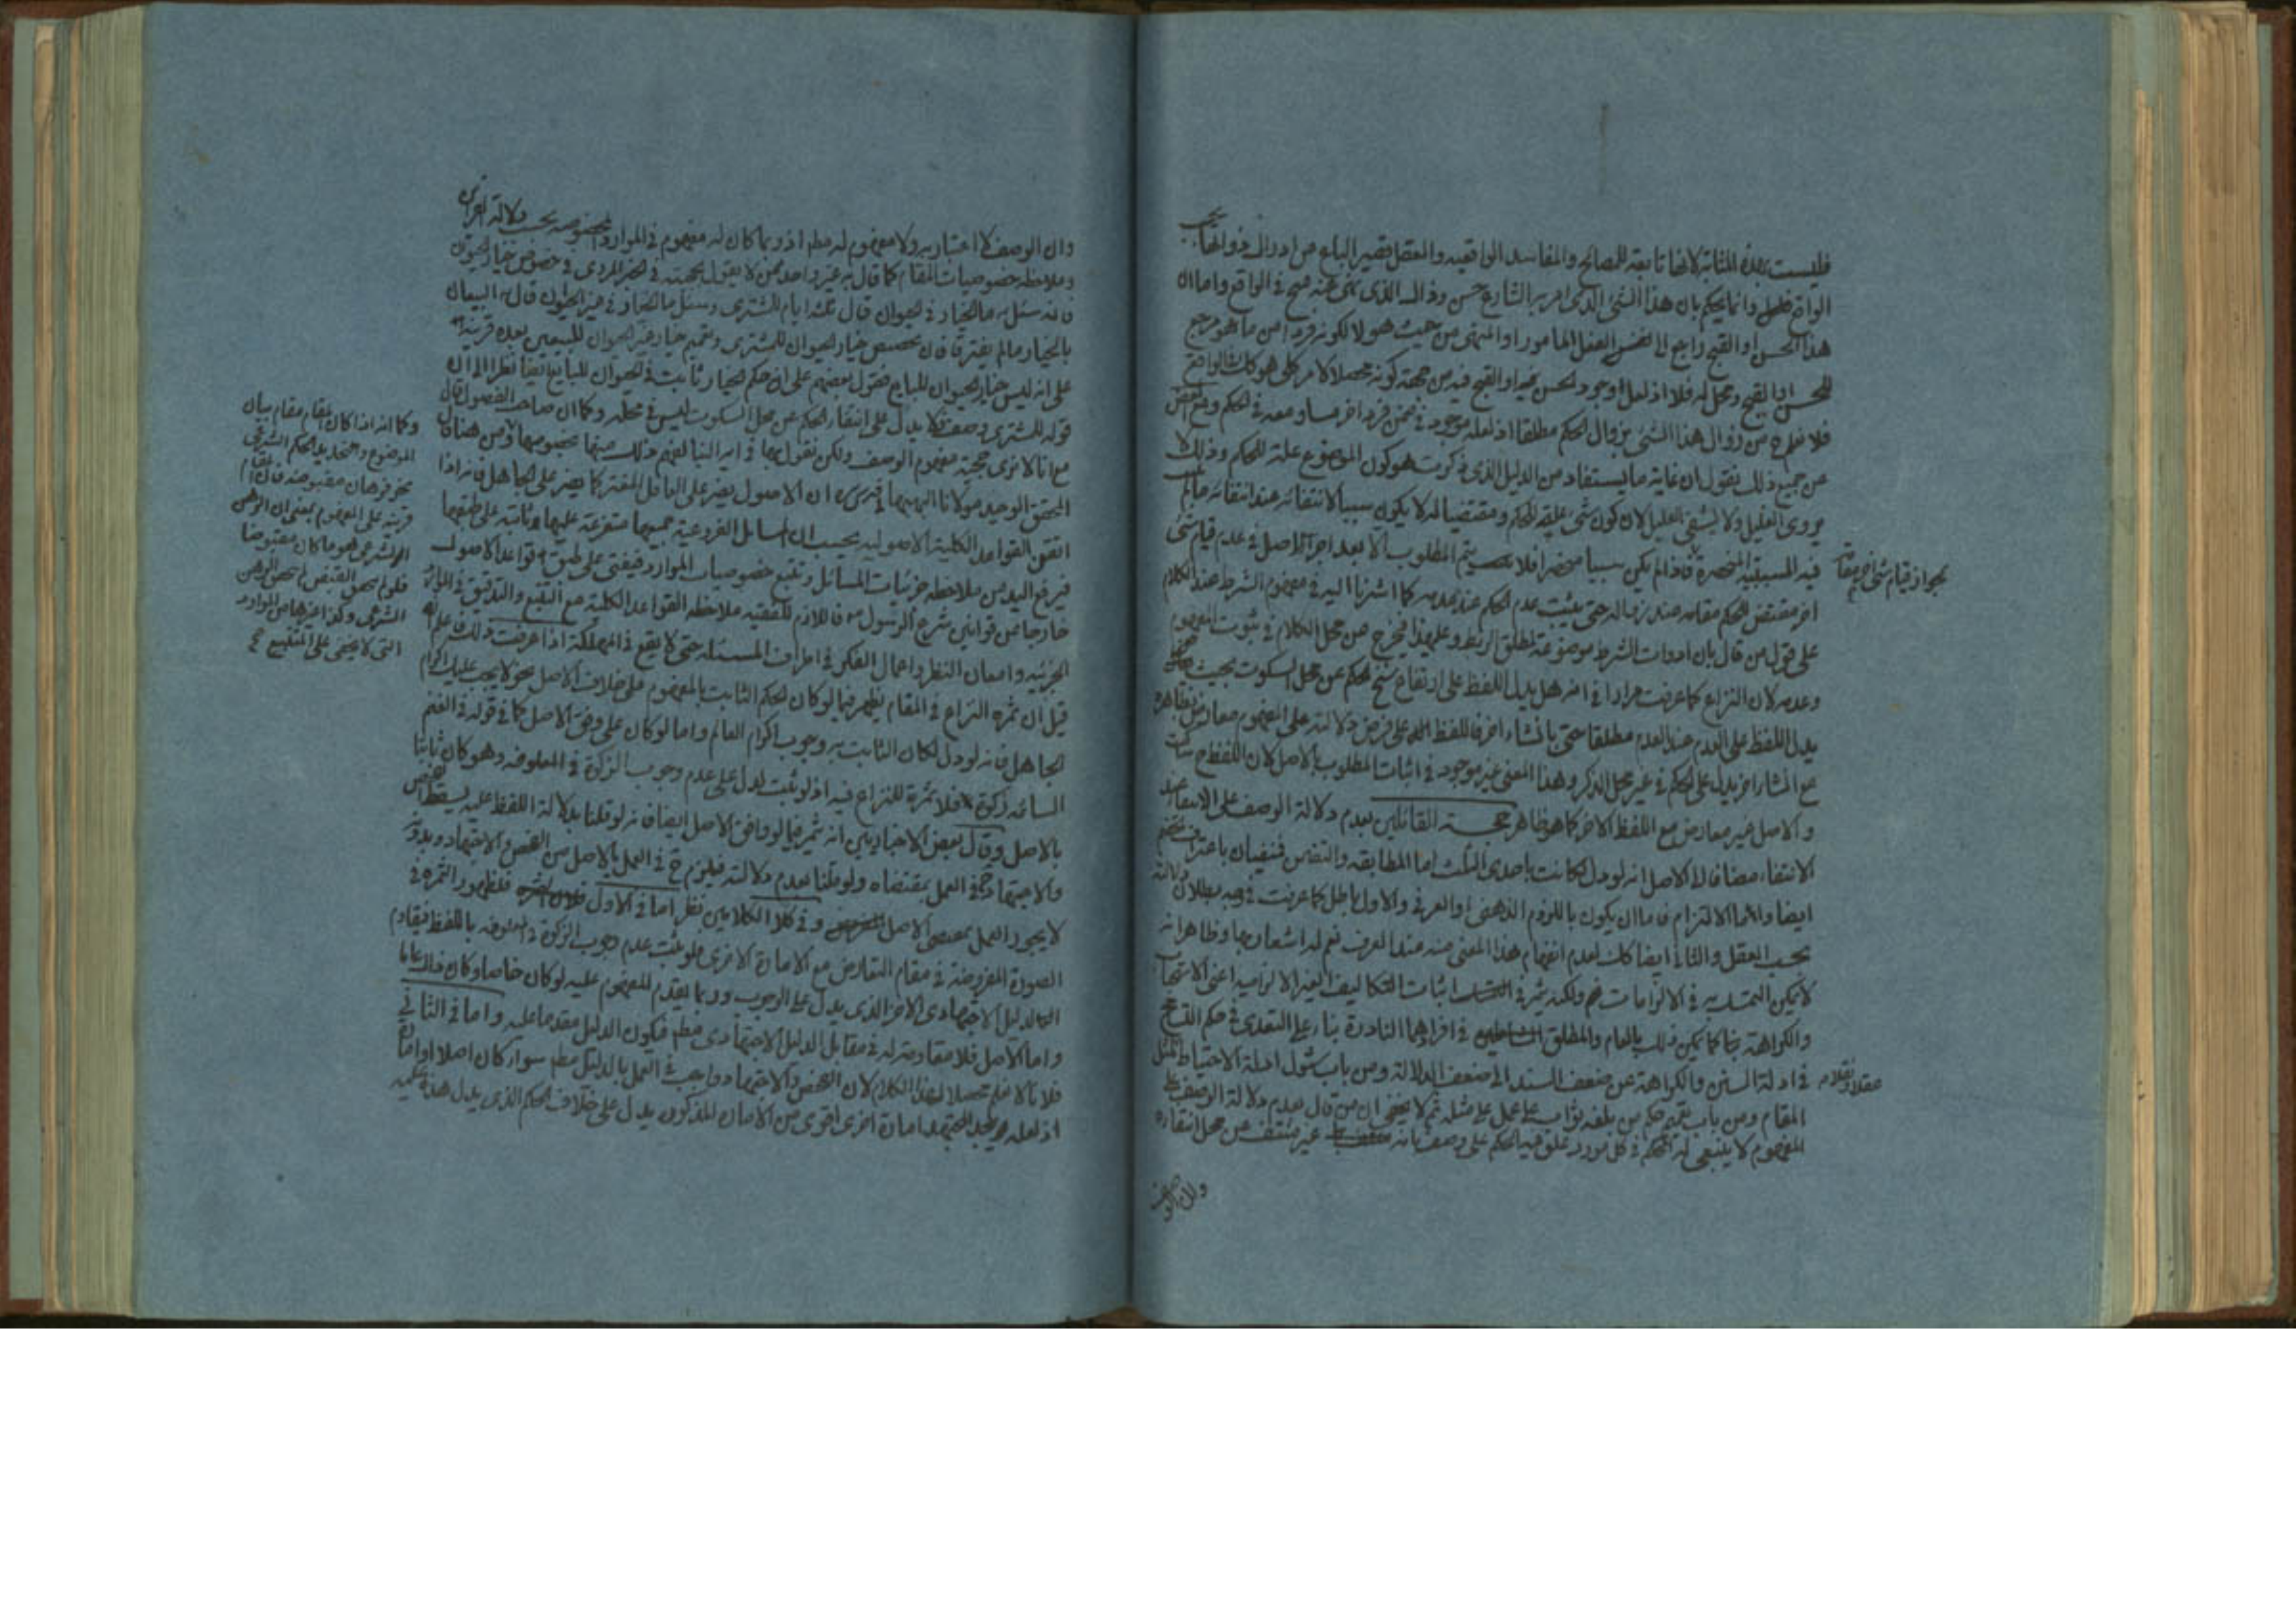 فليست بهذه المثابة لانها تابعة للمصالح والمفاسد الواقعيه والعقل قصير الباع من ادراك
الواقع وانما يحكم بان هذا الشئ الذى امر به الشارع حسن وذاك الذى نهى عنه قبيح فى الواقع واما ان
هذا الحسن او القبح راجع الى نفس الفعل المامور او المنهى من حيث هو لا لكونه فردا من ما هو مرجع
للحسن او القبح ومحل له فلا اذ لعل وجود الحسن فيه او القبح فيه من جهة كونه محصلا لامر كلى هو كك فى الواقع
فلا نعلم من زوال هذا الشئ بزوال الحكم مطلقا اذ لعله موجود فى ضمن فرد اخر مساو معه فى الحكم ومع الغض
عن جميع ذلك نقول ان غاية ما يستفاد من الدليل الذى ذكرت هو كون الموضوع علة للحكم وذلك لا
يروى الغليل ولا يشفى العليل لان كون شئ علة للحكم ومقتضيا له لا يكون سببا لانتفائه عند انتفائه ما لم
فيه السببية المنحصرة فاذا لم يكن سببا منحصرا فلا يتم المطلوب الا بعد اجراء الاصل فى عدم قيام شئ
لجواز قيام شئ اخر مقامه
اخر مقتض للحكم مقامه عند زواله حتى يثبت عدم الحكم عند عدمه كما اشرنا اليه فى مفهوم الشرط عند الكلام
على قول من قال بان ادوات الشرط موضوعة لمطلق الربط وعلى هذا فيخرج عن محل الكلام فى ثبوت المفهوم
وعدمه لان النزاع كما عرفت مرارا فى انه هل يدل اللفظ على ارتفاع سنخ الحكم عن محل السكوت بحيث
يدل اللفظ على العدم عند العدم مطلقا حتى بانشاء اخر فاللفظ على فرض دلالته على المفهوم معارض
مع انشاء اخر يدل على الحكم فى غير محل الذكر وهذا المعنى غير موجود فى اثبات المطلوب بالاصل لان اللفظ ح ساكت
والاصل غير معارض مع اللفظ الاخر كما هو ظاهر حجة القائلين بعدم دلالة الوصف على الانتفاء عند
الانتفاء مضافا الى الاصل انه لو دل لكانت باحدى الثلث اما المطابقة والتضمن فنفيان باعتراف الخصم
ايضا واما الالتزام فاما ان يكون باللزوم الذهنى او العرفى والاول باطل كما عرفت فى وجه بطلان دلالته
بحسب العقل والثانى ايضا كك لعدم انفهام هذا المعنى منه عند العرف نعم له اشعار بها وظاهر انه
لا يمكن التمسك به فى الالزامات نعم ولكنه يثمر فى اثبات التكاليف الغير الالزاميه اعنى الاستحباب
والكراهة بناء كما يمكن ذلك بالعام والمطلق فى افرادهما النادرة بناء على التعدى فى حكم التسامح
فى ادلة السنن والكراهة عن ضعف السند الى ضعف الدلالة ومن باب شمول ادلة الاحتياط لمثل
عقلا ونقلا
المقام ومن باب تعميم حكم من بلغه ثواب على عمل على مثله ثم لا يخفى ان من قال بعدم دلالة الوصف على
المفهوم لا ينبغى له الحكم فى كل مورد علق فيه الحكم على وصف بانه غير منتف عن محل انتفائه
وان الوصف
وان الوصف لا اعتبار به ولا مفهوم له مطم اذ ربما كان له مفهوم فى الموارد المخصوصه بحسب دلالة القرائن
وملاحظة خصوصيات المقام كما قال به غير واحد ممن لا يقول بحجيته فى الخبر المروى فى خصوص خيار الحيوان
فانه سئل ما الخيار فى الحيوان قال ثلثة ايام للمشترى وسئل ما الخيار فى غير الحيوان قال البيعان
بالخيار ما لم يفترقا فان تخصيص خيار الحيوان للمشترى وتعميم خيار غير الحيوان للبيعين بعده قرينة
على انه ليس خيار الحيوان للبايع فقول بعضهم على ان حكم الخيار ثابت فى الحيوان للبايع ايضا نظرا الى ان
قوله للمشترى وصف فلا يدل على انتفاء الحكم عن محل السكوت ليس فى محله وكما ان صاحب الفصول قال
مع انا لا نرى حجية مفهوم الوصف ولكن نقول بها فى اية النبأ لفهم ذلك منها بخصوصها ومن هنا قال
المحقق الوحيد مولانا البهبهانى ان الاصول يضر على الغافل المغتر كما يضر على الجاهل فانه اذا
اتقن القواعد الكلية الاصوليه يحسب ان المسائل الفرعية جميعها متفرعة عليها وثابتة على طبقها
فيرفع اليد من ملاحظة جزئيات المسائل وتتبع خصوصيات الموارد فيفتى على طبق قواعد الاصول
خارجا عن قوانين شرع الرسول فاللازم للفقيه ملاحظة القواعد الكلية مع التتبع والتدقيق فى الموارد
الجزئيه وامعان النظر واعمال الفكر فى اطراف المسئله حتى لا يقع فى المهلكة اذا عرفت ذلك فاعلم انه
قيل ان ثمرة النزاع فى المقام يظهر فيما لو كان الحكم الثابت بالمفهوم على خلاف الاصل نحو لا يجب عليك اكرام
الجاهل فانه لو دل لكان الثابت به وجوب اكرام العالم واما لو كان على وفق الاصل كما فى قوله فى الغنم
السائمة زكوة فلا ثمرة للنزاع فيه اذ لو ثبت لدل على عدم وجوب الزكوة فى المعلوفه وهو كان ثابتا
بالاصل وقال بعض الاخباريين انه يثمر فيما لو وافق الاصل ايضا فانه لو قلنا بدلالة اللفظ عليه يسقط الفحص
والاجتهاد ح فى العمل بمقتضاه ولو قلنا بعدم دلالته فيلزم ح فى العمل بالاصل من الفحص والاجتهاد وبدونه
لا يجوز العمل بمقتضى الاصل وفى كلا الكلامين نظر اما فى الاول فلظهور الثمرة فى
الصورة المفروضة فى مقام التعارض مع الامارة الاخرى فلو ثبت عدم وجوب الزكوة فى المعلوفه باللفظ فيقاوم
الدليل الاجتهادى الاخر الذى يدل على الوجوب وربما يقدم المفهوم عليه لو كان خاصا وكان ذاك عاما
واما الاصل فلا مقاومة له فى مقابل الدليل الاجتهادى مطم فيكون الدليل مقدما عليه واما فى الثانى
فلانا لا نعلم محصلا لهذا الكلام لان الفحص والاجتهاد واجب فى العمل بالدليل مطم سواء كان اصلا او امارة
اذ لعله يجد المجتهد امارة اخرى اقوى من الامارة المذكورة يدل على خلاف الحكم الذى يدل هذه عليه
وكما انه اذا كان المقام مقام بيان
الموضوع وتحديد الحكم الشرعى
نحو فرهان مقبوضة فان المقام
قرينة على المفهوم بمعنى ان الرهن
الشرعى هو ما كان مقبوضا
فلو لم يتحقق القبض لم يتحقق الرهن
الشرعى وكذا غيرها من الموارد
التى لا يخفى على المتتبع